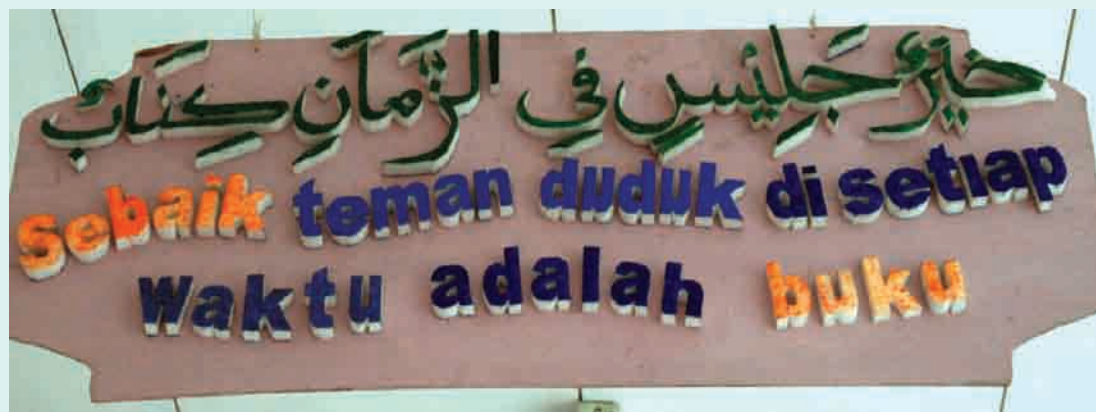 خَيْرُ جَلِيْسٍ فِي الزَّمَانِ كِتَابٌ
sebaik teman duduk di setiap
waktu adalah buku